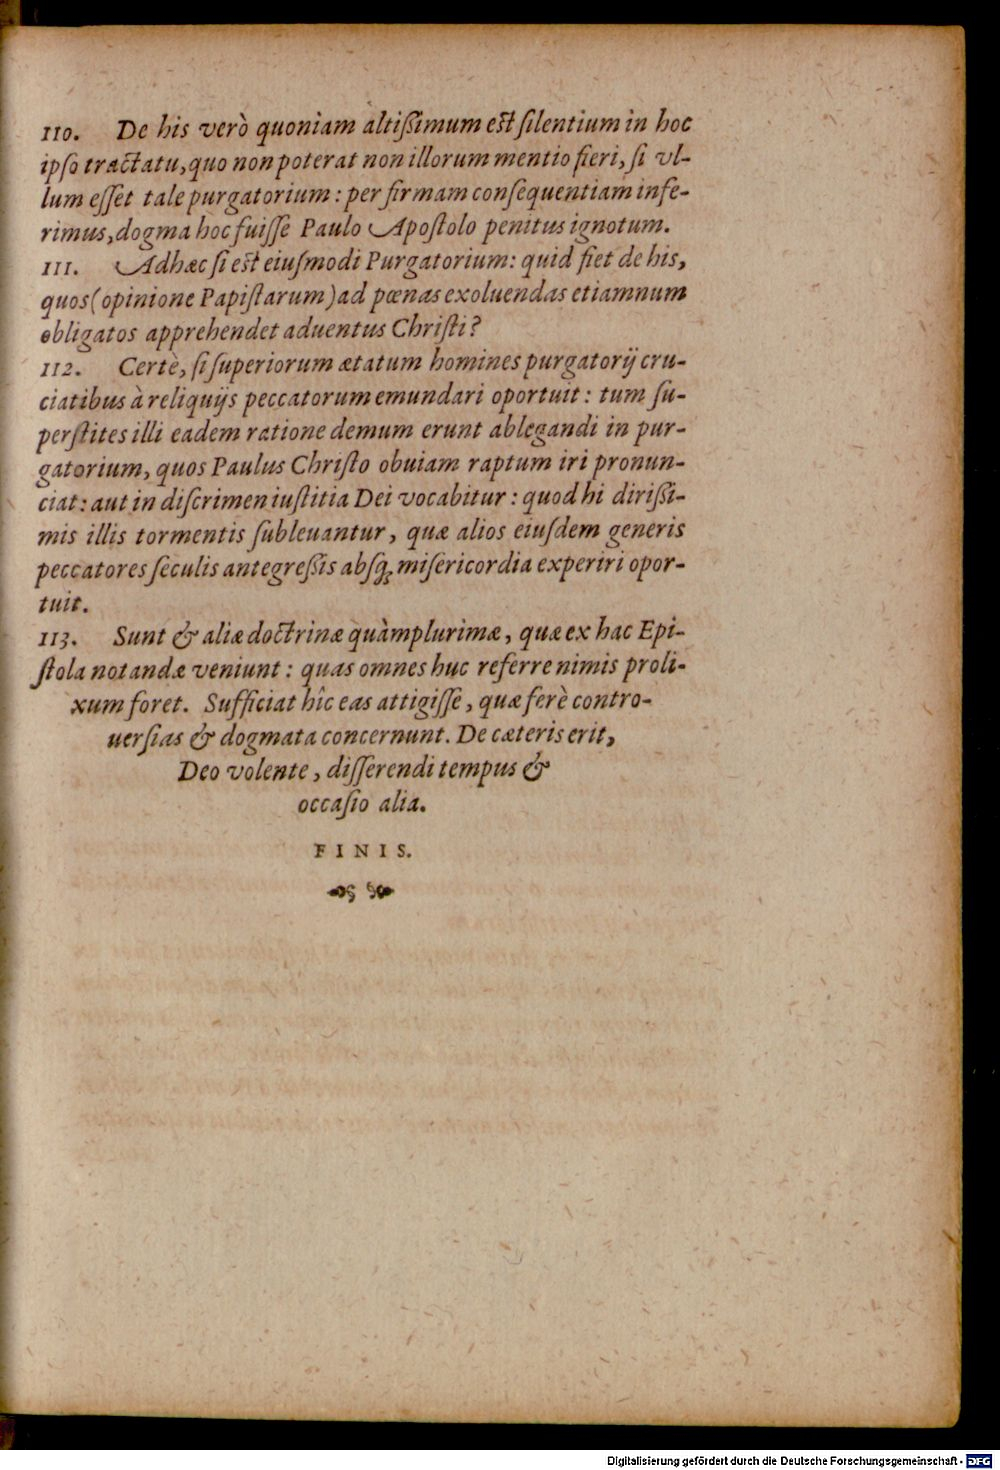 110. De his verò quoniam altißimum est ſilentium in hoc
ipſo tractatu, quo non poterat non illorum mentio fieri, ſi vl-
lum eſſet tale purgatorium : per firmam conſequentiam infe-
rimus, dogma hoc fuiſſe Paulo Apoſtolo penitus ignotum.
111. Adhæc ſi est eiuſmodi Purgatorium: quid fiet de his,
quos (opinione Papiſtarum) ad pœnas exoluendas etiamnum
obligatos apprehendet aduentus Chriſti?
112. Certè, ſi ſuperiorum ætatum homines purgatorij cru-
ciatibus à reliquijs peccatorum emundari oportuit : tum ſu-
perſtites illi eadem ratione demum erunt ablegandi in pur-
gatorium, quos Paulus Chriſto obuiam raptum iri pronun-
ciat : aut in diſcrimen iuſtitia Dei vocabitur : quod hi dirißi-
mis illis tormentis ſubleuantur, quæ alios eiuſdem generis
peccatores ſeculis antegreßis abſq; miſericordia experiri opor-
tuit.
113. Sunt & aliæ doctrinæ quàmplurimæ, quæ ex hac Epi-
ſtola notandæ veniunt : quas omnes huc referre nimis proli-
xum foret. Sufficiat hîc eas attigiſſe, quæ ferè contro-
uerſias & dogmata concernunt. De cæteris erit,
Deo volente, diſſerendi tempus &
occaſio alia.
FINIS.
Digitalisierung gefördert durch die Deutsche Forschungsgemeinschaft - DFG